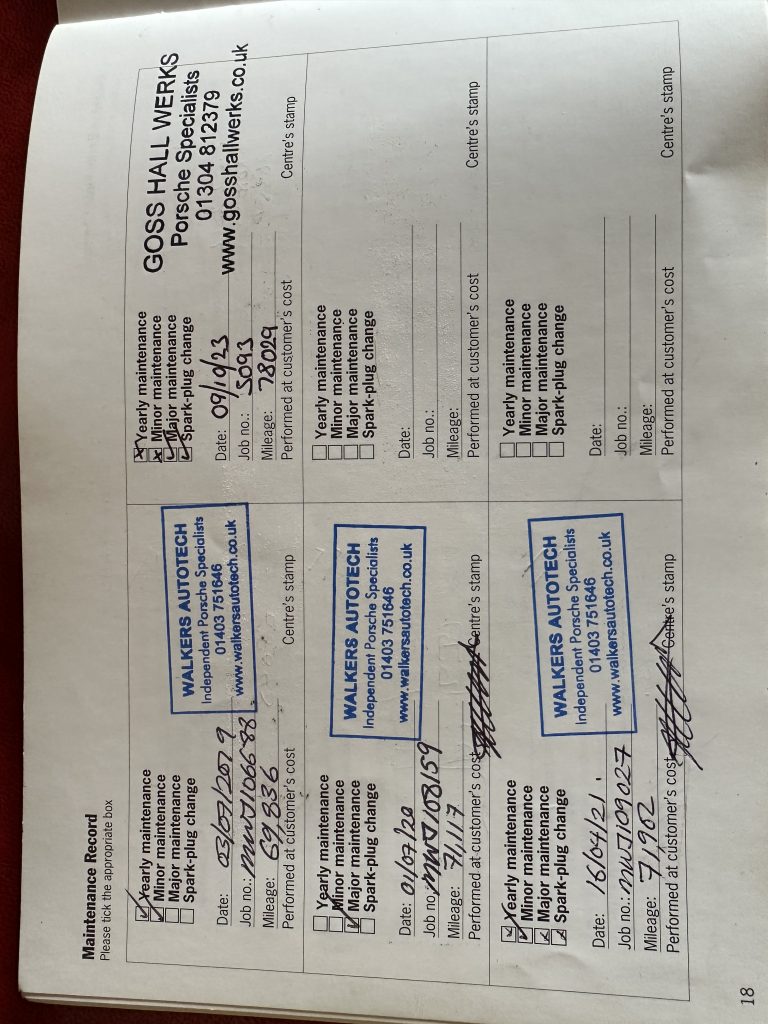 Maintenance Record
Please tick the appropriate box
Yearly maintenance
Minor maintenance
Major maintenance
Spark-plug change
Date: 03/07/2019
Job no.: MWJ106688
Mileage: 69836
Performed at customer's cost
Centre's stamp
WALKERS AUTOTECH
Independent Porsche Specialists
01403 751646
www.walkersautotech.co.uk
Yearly maintenance
Minor maintenance
Major maintenance
Spark-plug change
Date: 09/10/23
Job no.: 5093
Mileage: 78029
Performed at customer's cost
Centre's stamp
GOSS HALL WERKS
Porsche Specialists
01304 812379
www.gosshallwerks.co.uk
Yearly maintenance
Minor maintenance
Major maintenance
Spark-plug change
Date: 01/07/20
Job no: MWJ108159
Mileage: 71,117
Performed at customer's cost
Centre's stamp
WALKERS AUTOTECH
Independent Porsche Specialists
01403 751646
www.walkersautotech.co.uk
Yearly maintenance
Minor maintenance
Major maintenance
Spark-plug change
Date:
Job no.:
Mileage:
Performed at customer's cost
Centre's stamp
Yearly maintenance
Minor maintenance
Major maintenance
Spark-plug change
Date: 16/04/21.
Job no.: MWJ109027
Mileage: 71,902
Performed at customer's cost
Centre's stamp
WALKERS AUTOTECH
Independent Porsche Specialists
01403 751646
www.walkersautotech.co.uk
Yearly maintenance
Minor maintenance
Major maintenance
Spark-plug change
Date:
Job no.:
Mileage:
Performed at customer's cost
Centre's stamp
18